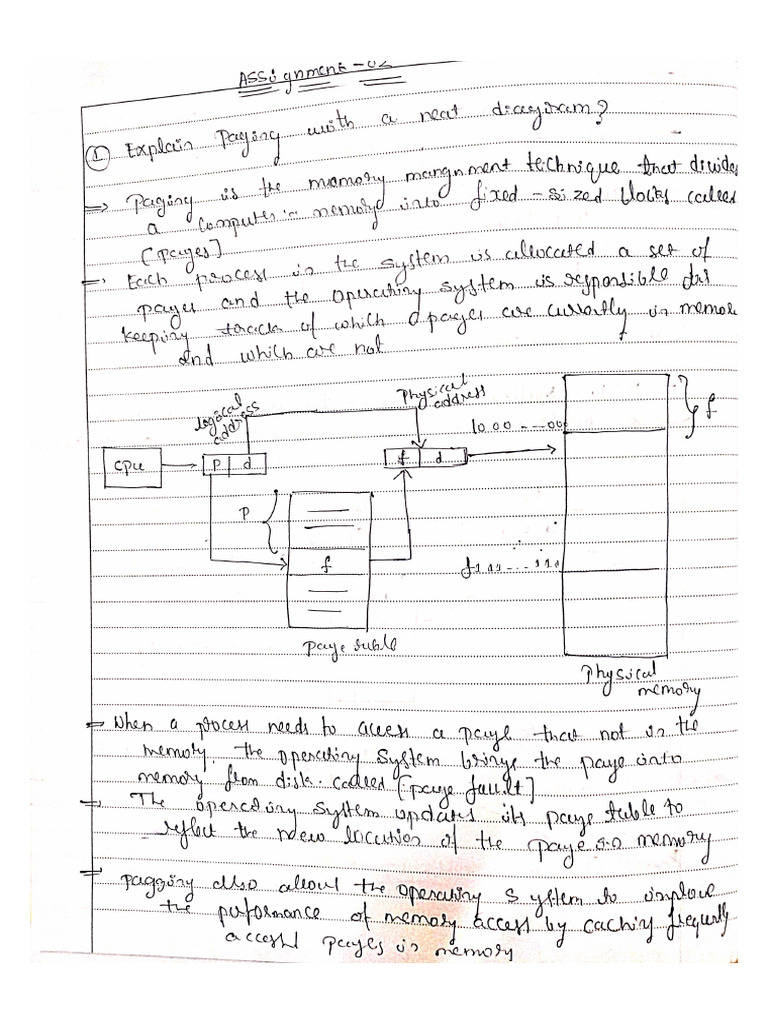 Assignment - 02
① Explain Paging with a neat diagram?
=> Paging is the memory mangnment technique that divides
a computer memory into fixed - sized blocks called
[pages]
=> Each process in the system is allocated a set of
pages and the operating system is responsible for
keeping track of which pages are currently in memor
and which are not
logical address
Physical address
10.00 - -- 00
f
CPU
P d
f d
P
f
f11 11 -- . . 110
page table
Physical memory
=> When a process needs to access a page that not in the
memory. the operating system brings the page into
memory from disk. called [page fault]
=> The operating system updates its page table to
reflect the new location of the page in memory
=> pagging also allows the operating system to improve
the performance of memory access by caching frequently
access pages in memory